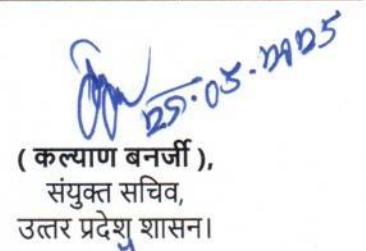 25.05.2025
( कल्याण बनर्जी ),
संयुक्त सचिव,
उत्तर प्रदेश शासन।